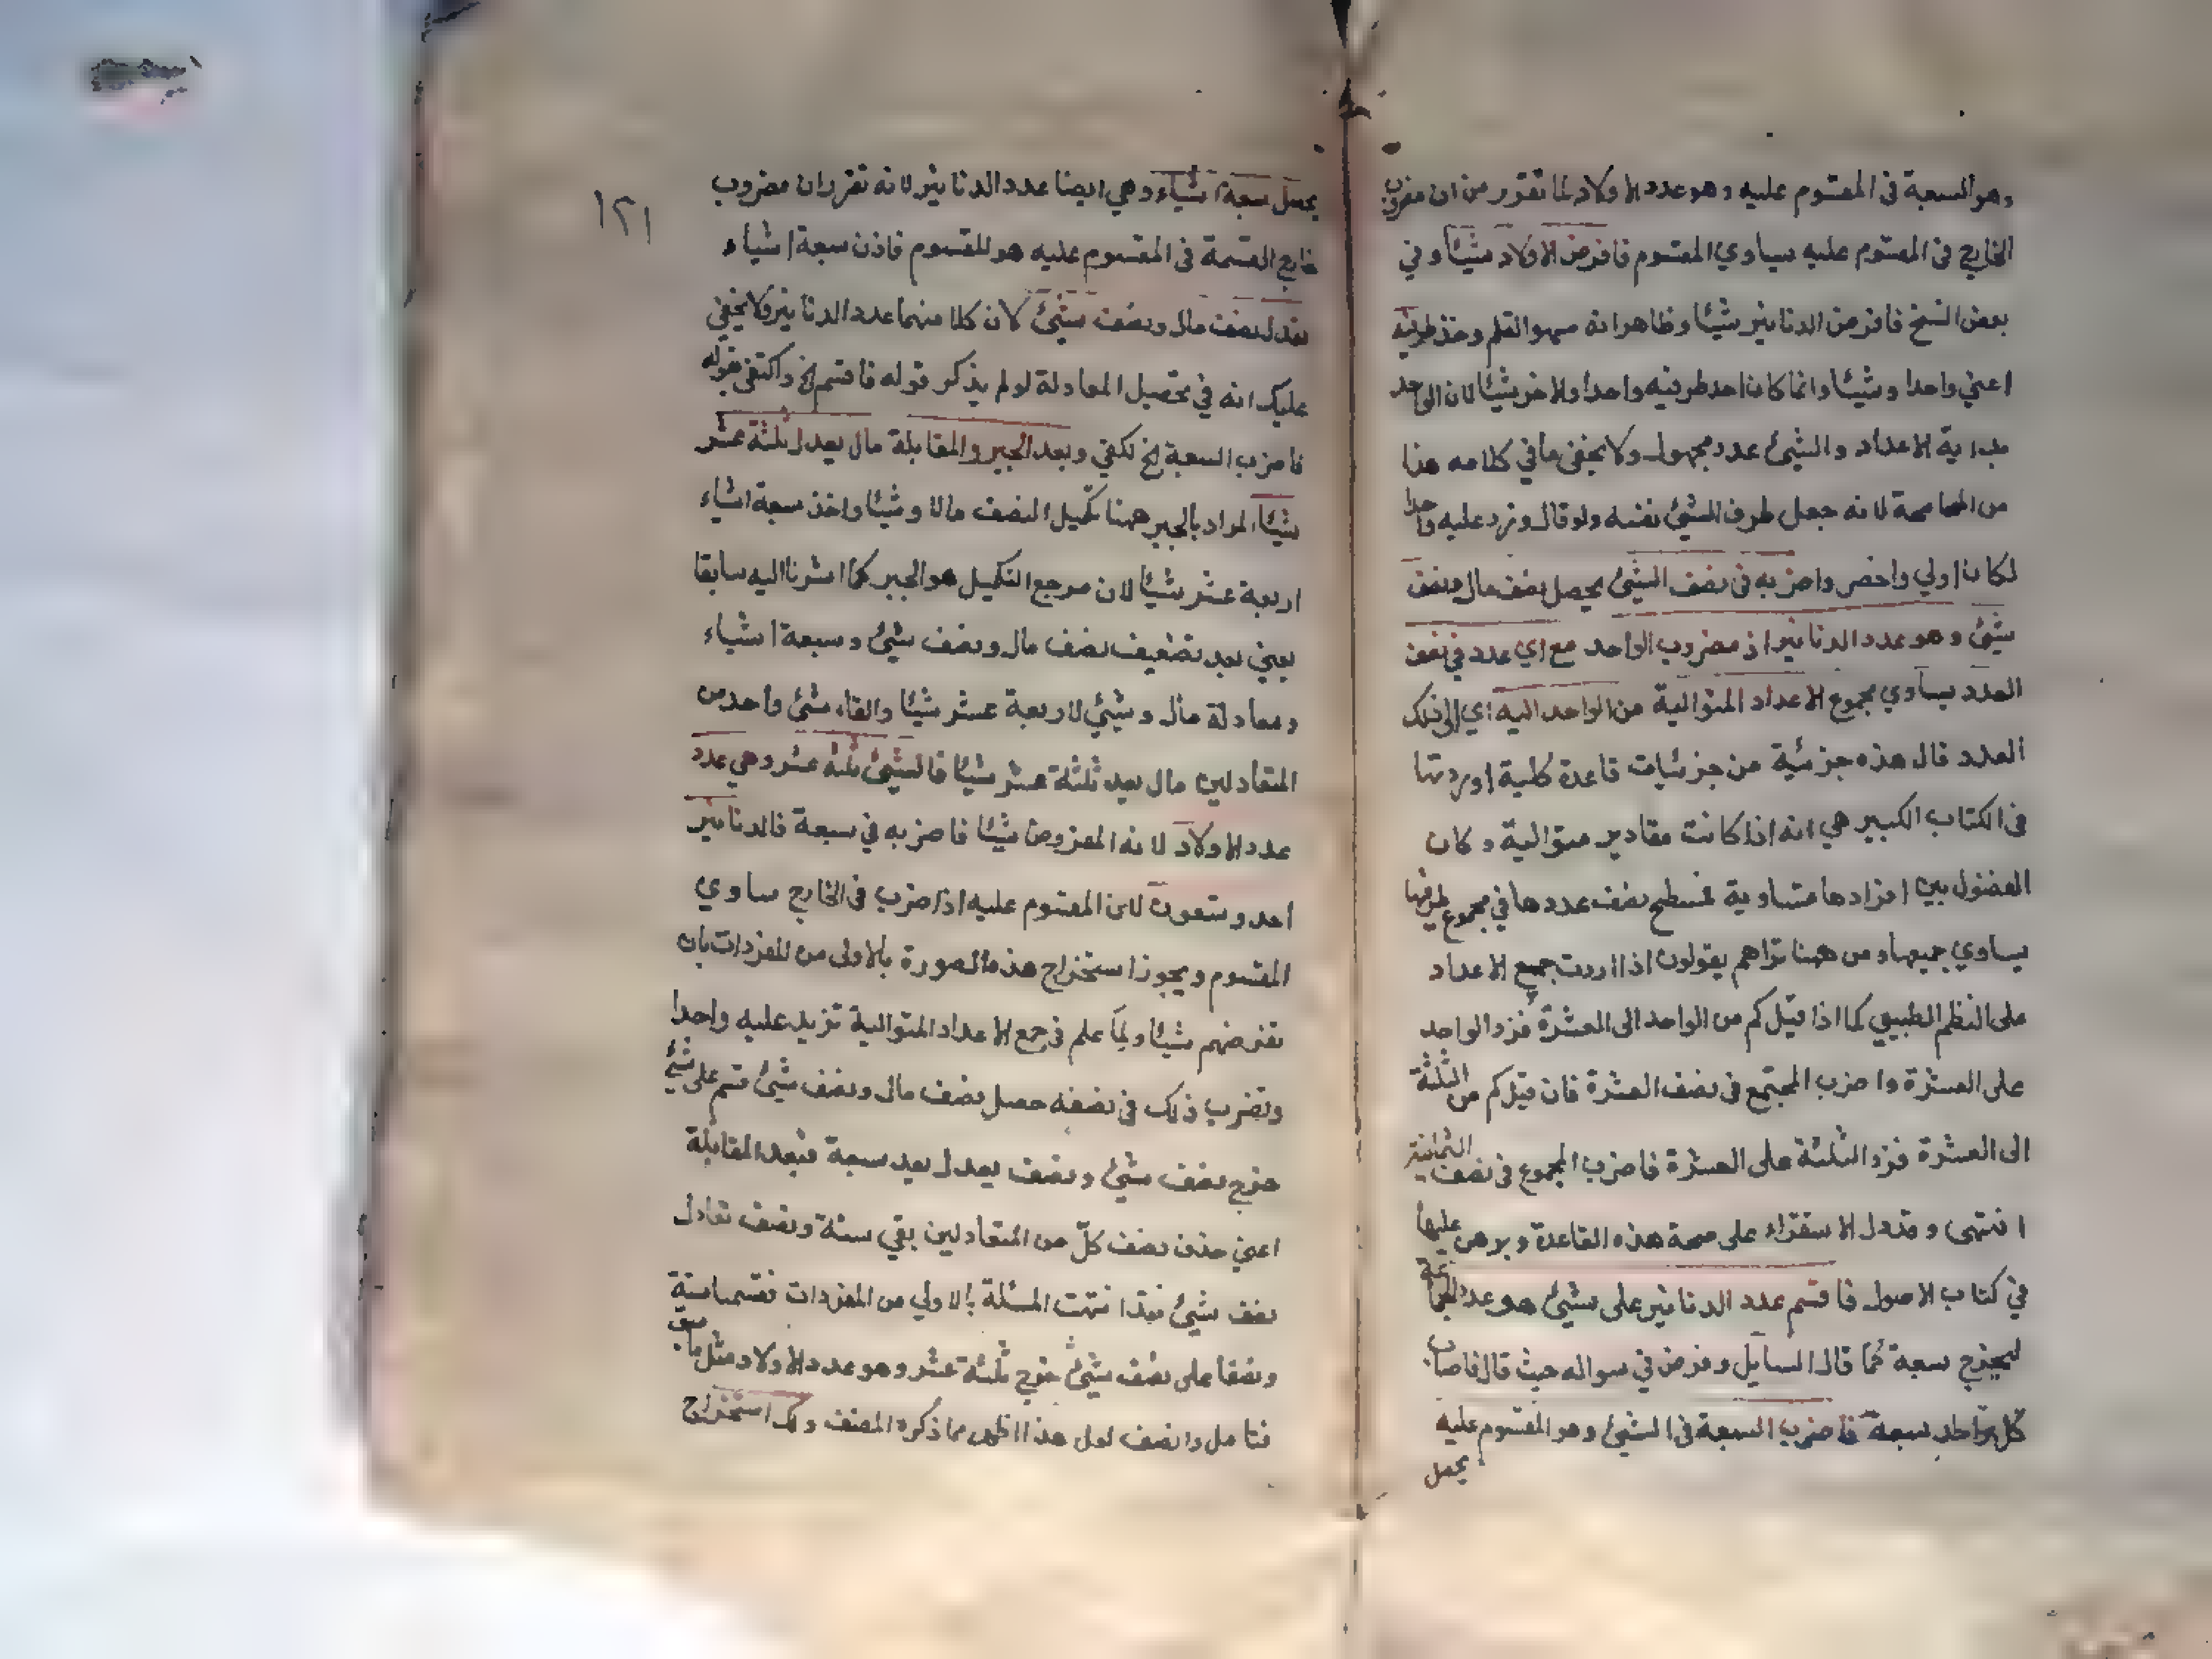 وهو السبعة فى المقسوم عليه وهو عدد الاولاد لما تقرر من ان مضروب
الخارج فى المقسوم عليه يساوي المقسوم فافرض الاولاد شيئا وفي
بعض النسخ فافرض الدنانير شيئا وظاهرا نه سهو القلم وخذ طرفيه
اعني واحدا وشيئا وانما كان احد طرفيه واحدا والاخر شيئا لان الواحد
بداية الاعداد والشيئ عدد مجهول ولا يخفى ما في كلامه هذا
من المسامحة لانه جعل طرف الشيئ نفسه ولو قال وزد عليه واحدا
لكان اولي واخصر واضربه فى نصف الشيئ يحصل نصف مال ونصف
شيئ وهو عدد الدنانير اذ مضروب الواحد مع اي عدد في نصف
العدد يساوي مجموع الاعداد المتوالية من الواحد اليه اي الى ذلك
العدد قال هذه جزئية من جزئيات قاعدة كلية اوردتها
فى الكتاب الكبير هي انه اذا كانت مقادير متوالية وكان
الفضول بين افرادها متساوية فمسطح نصف عددها في مجموع طرفيها
يساوي جميعها ومن ههنا تراهم يقولون اذا اردت جمع الاعداد
على النظم الطبيعي كما اذا قيل كم من الواحد الى العشرة فزد الواحد
على العشرة واضرب المجتمع فى نصف العشرة فان قيل كم من الثلثة
الى العشرة فزد الثلثة على العشرة فاضرب المجموع فى نصف الثمانية
انتهى وقد دل الاستقراء على صحة هذه القاعدة وبرهن عليها
في كتاب الاصول فاقسم عدد الدنانير على شيئ هو عدد الجماعة
ليخرج سبعة كما قال السايل وفرض في سواله حيث قال فاصاب
كل واحد سبعة فاضرب السبعة فى الشيئ وهو المقسوم عليه
يحصل
١٢١
يحصل سبعة اشياء وهي ايضا عدد الدنانير لانه تقرر ان مضروب
خارج القسمة فى المقسوم عليه هو للقسوم فاذن سبعة اشياء
تعدل نصف مال ونصف شيئ لان كلا منهما عدد الدنانير ولا يخفى
عليك انه في تحصيل المعادلة لو لم يذكر قوله فاقسم الخ واكتفى بقوله
فاضرب السبعة الخ لكفي وبعد الجبر والمقابلة مال يعدل ثلثة عشر
شيئا المراد بالجبر ههنا تكميل النصف مالا وشيئا واخذ سبعة اشياء
اربعة عشر شيئا لان مرجع التكميل هو الجبر كما اشرنا اليه سابقا
يعني بعد تضعيف نصف مال ونصف شيئ وسبعة اشياء
ومعادلة مال وشيئ لاربعة عشر شيئا والقاء شئ واحد من
المتعادلين مال يعدل ثلثة عشر شيئا فالشيئ ثلثة عشر وهي عدد
عدد الاولاد لانه المفروض شيئا فاضربه في سبعة فالدنانير
احد وتسعون لان المقسوم عليه اذا ضرب فى الخارج ساوي
المقسوم ويجوز استخراج هذه الصورة بالاولى من المفردات بان
تفرضهم شيئا ولما علم فى جمع الاعداد المتوالية تزيد عليه واحدا
وتضرب ذلك فى نصفه حصل نصف مال ونصف شيئ قسم على شيئ
خرج نصف شيئ ونصف يعدل سبعة فبعد المقابلة
اعني حذف نصف كلّ من المتعادلين بقي ستة ونصف تعادل
نصف شيئ فقد انتهت المسئلة بالاولي من المفردات فقسمنا ستة
ونصفا على نصف شيئ خرج ثلثة عشر وهو عدد الاولاد مثل ما سبق
فتامل وانصف لعل هذا اظهر مما ذكره المصنف ولك استخراج